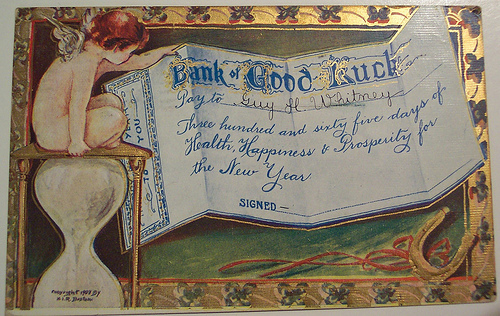 Bank of Good Luck
Pay to Guy H Whitney
Three hundred and sixty five days of
Health, Happiness & Prosperity for
the New Year
SIGNED —
TO YOU
COPYRIGHT 1909 BY